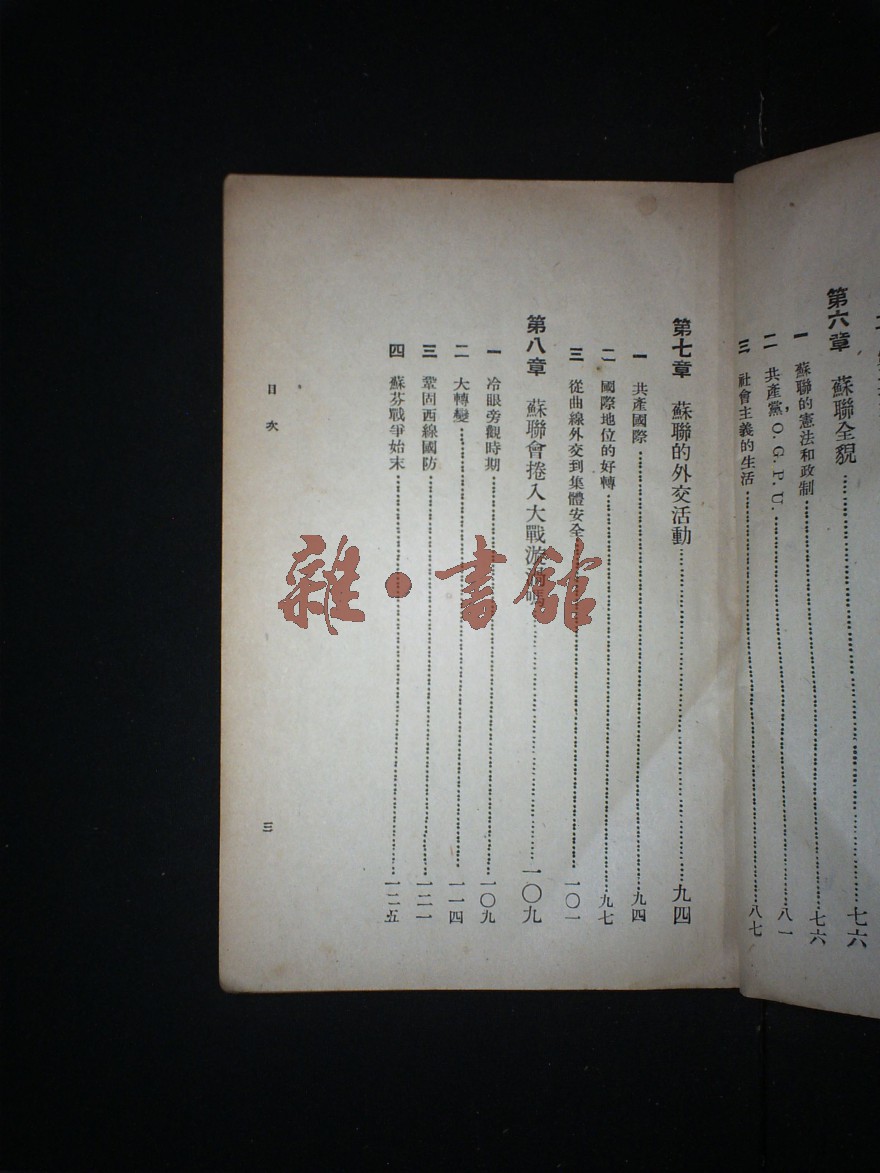 第六章　蘇聯全貌……七六
一　蘇聯的憲法和政制……七六
二　共產黨，O. G. P. U.……八一
三　社會主義的生活……八七
第七章　蘇聯的外交活動……九四
一　共產國際……九四
二　國際地位的好轉……九七
三　從曲線外交到集體安全……一〇一
第八章　蘇聯會捲入大戰漩渦嗎……一〇九
一　冷眼旁觀時期……一〇九
二　大轉變……一一四
三　鞏固西線國防……一二一
四　蘇芬戰爭始末……一二五
目次
三
雜·書館